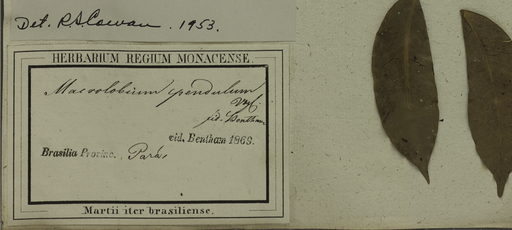 Det. R.S. Cowan . 1953.
HERBARIUM REGIUM MONACENSE.
Macrolobium pendulum
Vog.
fid. Bentham.
vid. Bentham 1869.
Brasilia Provinc. Pará.
Martii iter brasiliense.